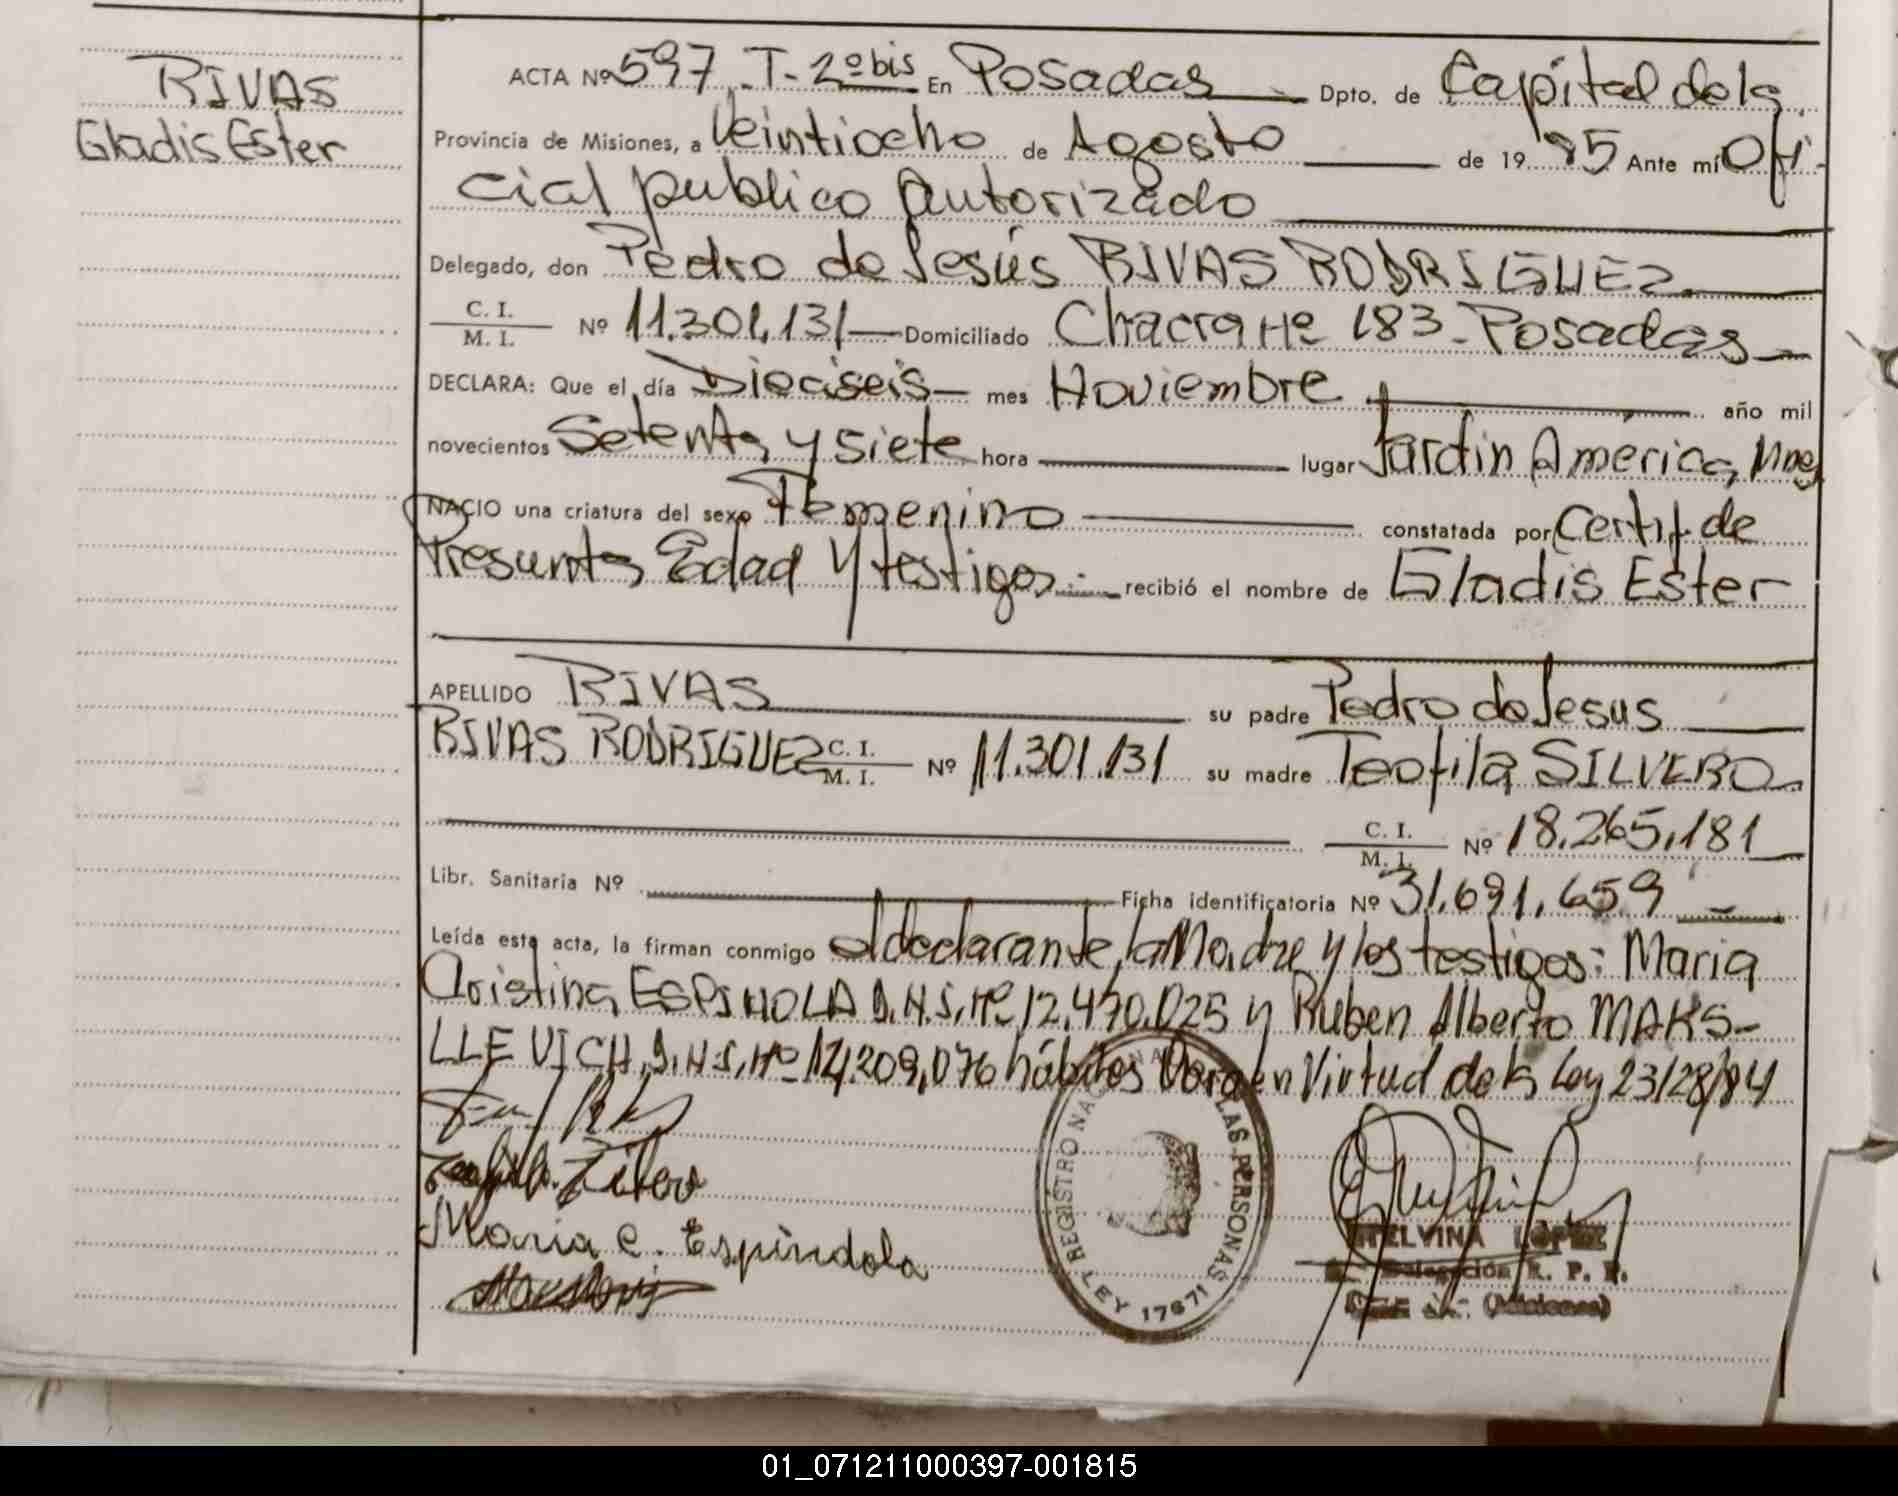 RIVAS
Gladis Ester
ACTA Nº 597 T-2º bis En Posadas Dpto. de Capital de la
Provincia de Misiones, a Veintiocho de Agosto de 19 85 Ante mí Ofi-
cial publico Autorizado
Delegado, don Pedro de Jesús RIVAS RODRIGUEZ
C. I.
M. I. Nº 11.301.131 Domiciliado Chacra Nº 183 - Posadas
DECLARA: Que el día Dieciseis mes Noviembre año mil
novecientos Setenta y siete hora lugar Jardin America, Mnes
NACIO una criatura del sexo Femenino constatada por Certif. de
Presunta Edad y testigos recibió el nombre de Gladis Ester
APELLIDO RIVAS su padre Pedro de Jesus
RIVAS RODRIGUEZ C. I. M. I. Nº 11.301.131 su madre Teofila SILVERO
C. I.
M. I. Nº 18.265.181
Libr. Sanitaria Nº Ficha identificatoria Nº 31.691.659
Leída esta acta, la firman conmigo el declarante, la Madre y los testigos: Maria
Cristina ESPINOLA D.N.I. Nº 12.470.025 y Ruben Alberto MAKS-
LLEVICH, D.N.I. Nº 14.209.076 hábiles en Virtud de la Ley 23128/84
Maria C. Espindola
REGISTRO NACIONAL DE LAS PERSONAS
LEY 17671
ETELVINA LOPEZ
Delegación R. P. P.
(Misiones)
01_071211000397-001815